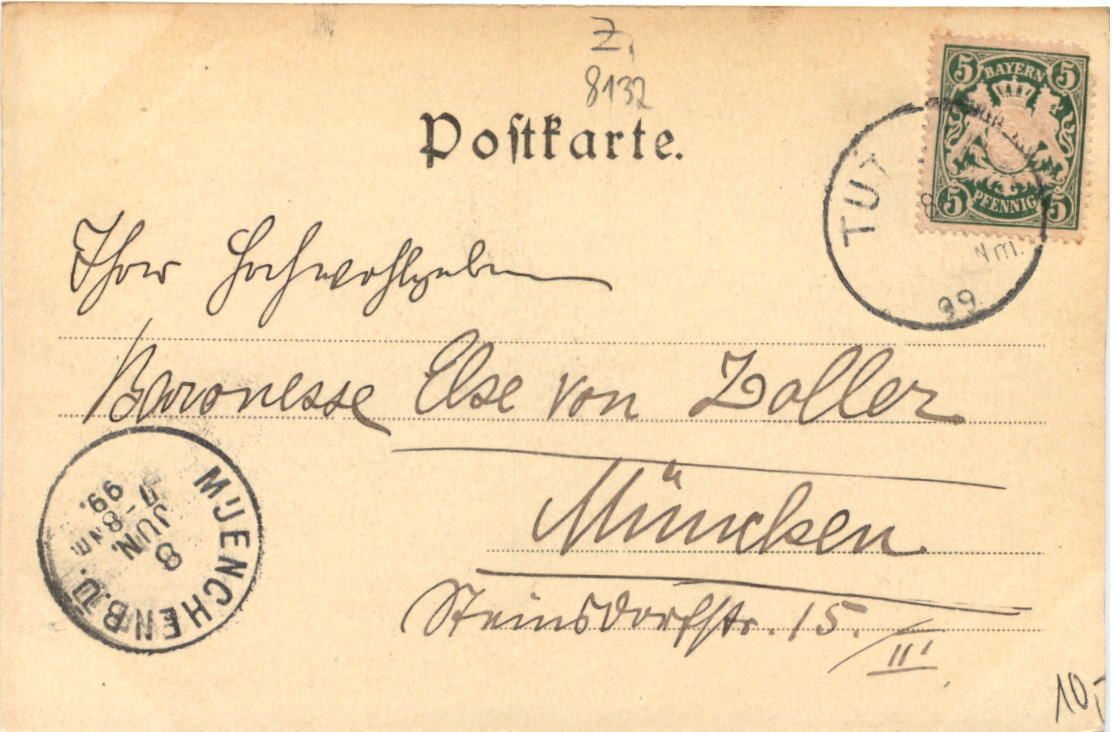 Z,
8132
Postkarte.
5 BAYERN 5
5 PFENNIG 5
TUT
8
Nm.
99
Ihrer Hochwohlgeboren
Baronesse Else von Zoller
München
Steinsdorfstr. 15./III
MUENCHEN B.U.
8
JUN.
7-8 Nm.
99.
10,-